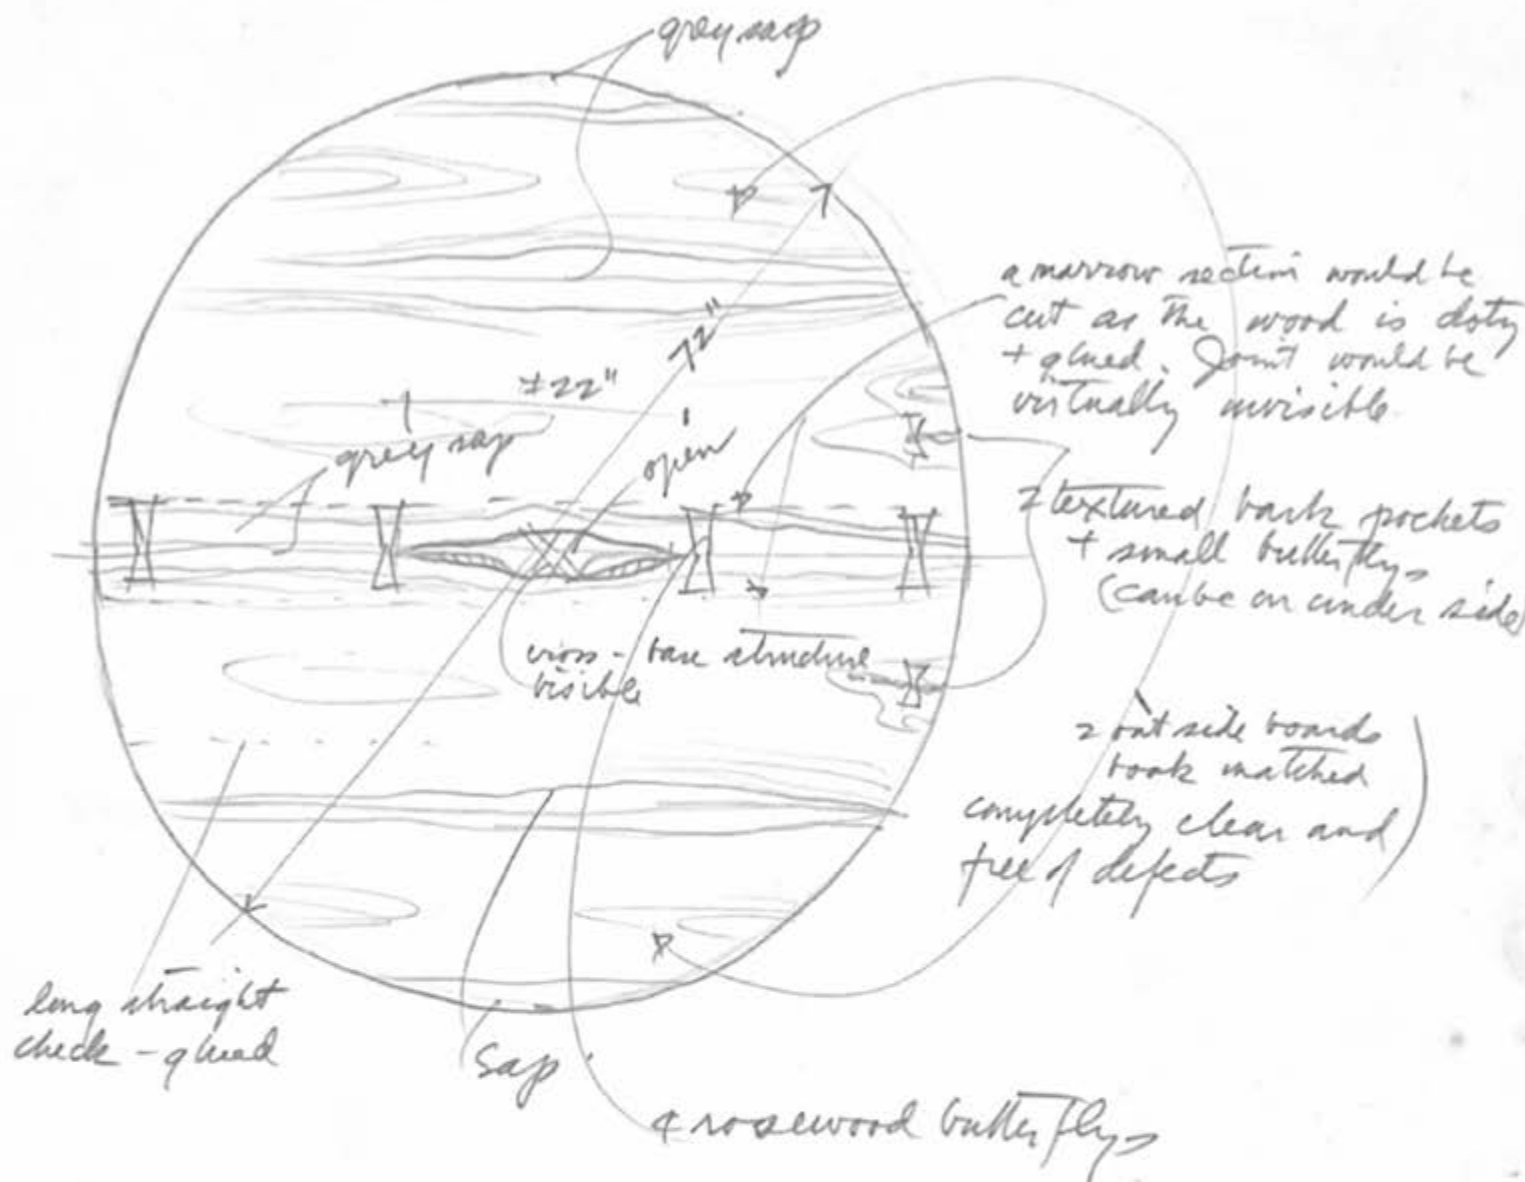 grey sap
a narrow section would be
cut as the wood is doty
+ glued. Joint would be
virtually invisible
72"
±22"
grey sap
open
2 textured bark pockets
+ small butterflys
(can be on under side)
cross-base structure
visible
2 outside boards
book matched
completely clear and
free of defects
long straight
check - glued
Sap
4 rosewood butterflys